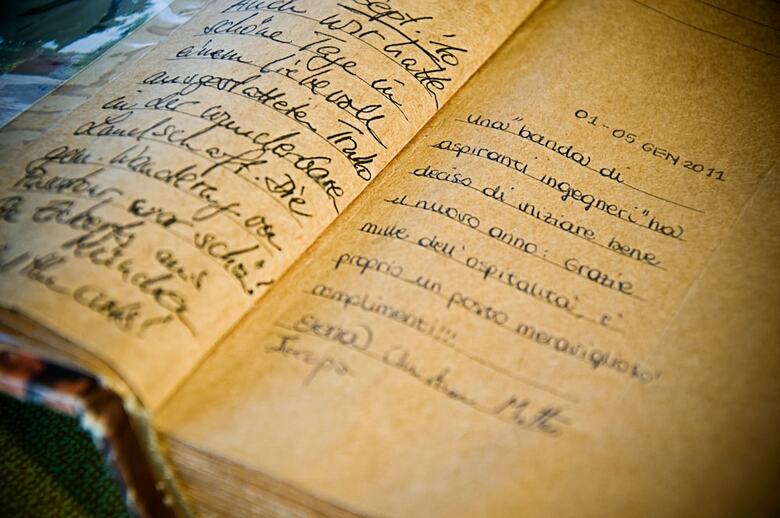 Sept. '10
Auch wir hatten
schöne Tage in
einem liebevoll
ausgestatteten Trullo
in der wunderbaren
Landschaft. Die
gem. Wanderung von
war schön!
aus
01 - 05 GEN 2011
una "banda di
aspiranti ingegneri" ha
deciso di iniziare bene
il nuovo anno: Grazie
mille dell'ospitalità, e'
proprio un posto meraviglioso!
complimenti!!!
Elena Christian Matteo